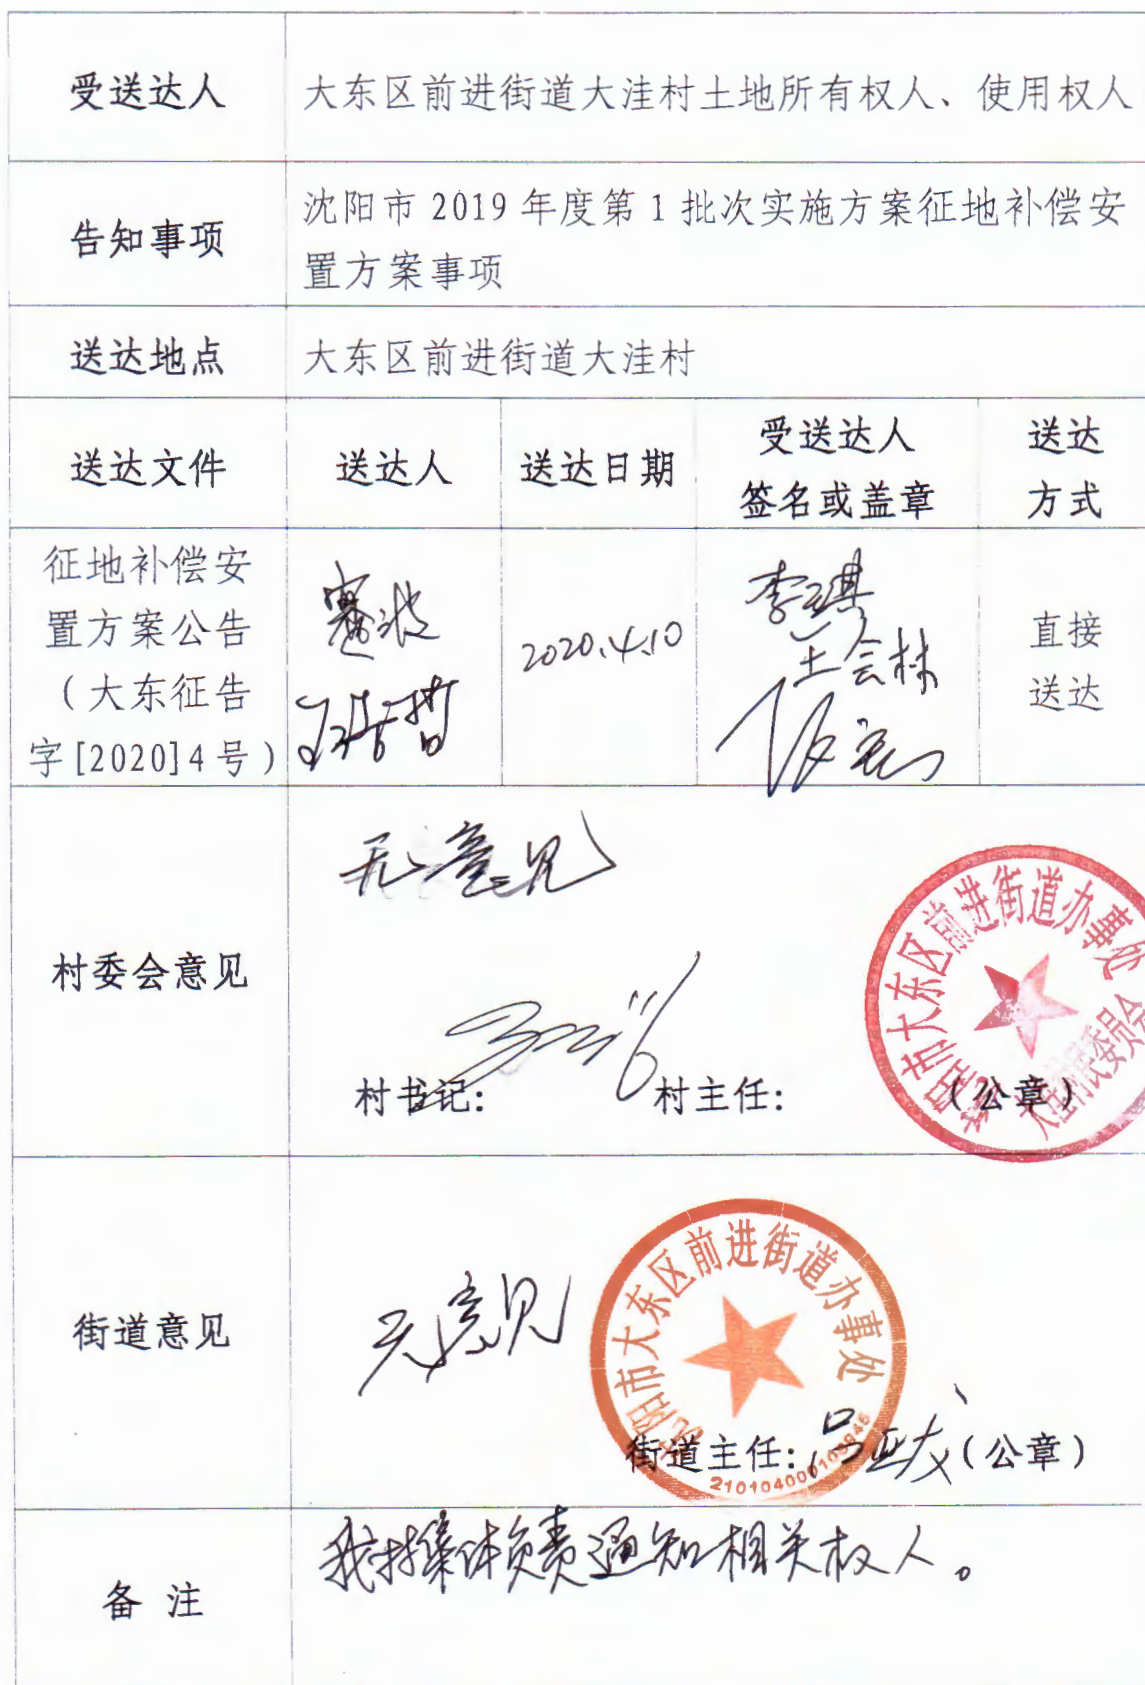 受送达人
大东区前进街道大洼村土地所有权人、使用权人
告知事项
沈阳市 2019 年度第 1 批次实施方案征地补偿安
置方案事项
送达地点
大东区前进街道大洼村
送达文件
送达人
送达日期
受送达人
签名或盖章
送达
方式
征地补偿安
置方案公告
（大东征告
字[2020]4号）
2020.4.10
李琪
王会林
直接
送达
村委会意见
无意见
村书记：
村主任：
（公章）
沈阳市大东区前进街道办事处
大洼村民委员会
街道意见
无意见
沈阳市大东区前进街道办事处
街道主任：
（公章）
备 注
我村集体负责通知相关权人。